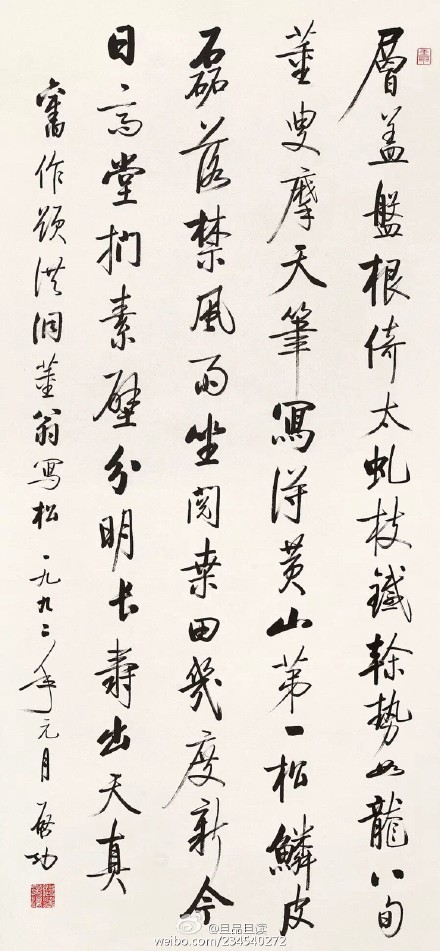 層蓋盤根倚太虬枝鐵榦勢如龍八旬
董叟摩天筆寫得黃山第一松鱗皮
磊落禁風雨坐閱桑田幾度新今
日高堂捫素壁分明長壽出天真
舊作題洪洞董翁寫松一九九二年元月啟功
@且品且读
weibo.com/234540272